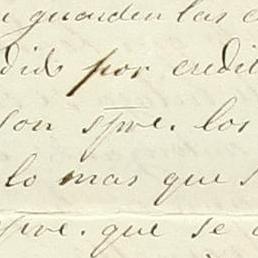 guarden las
dido por credit
son spre. los
lo mas que s
spre. que se